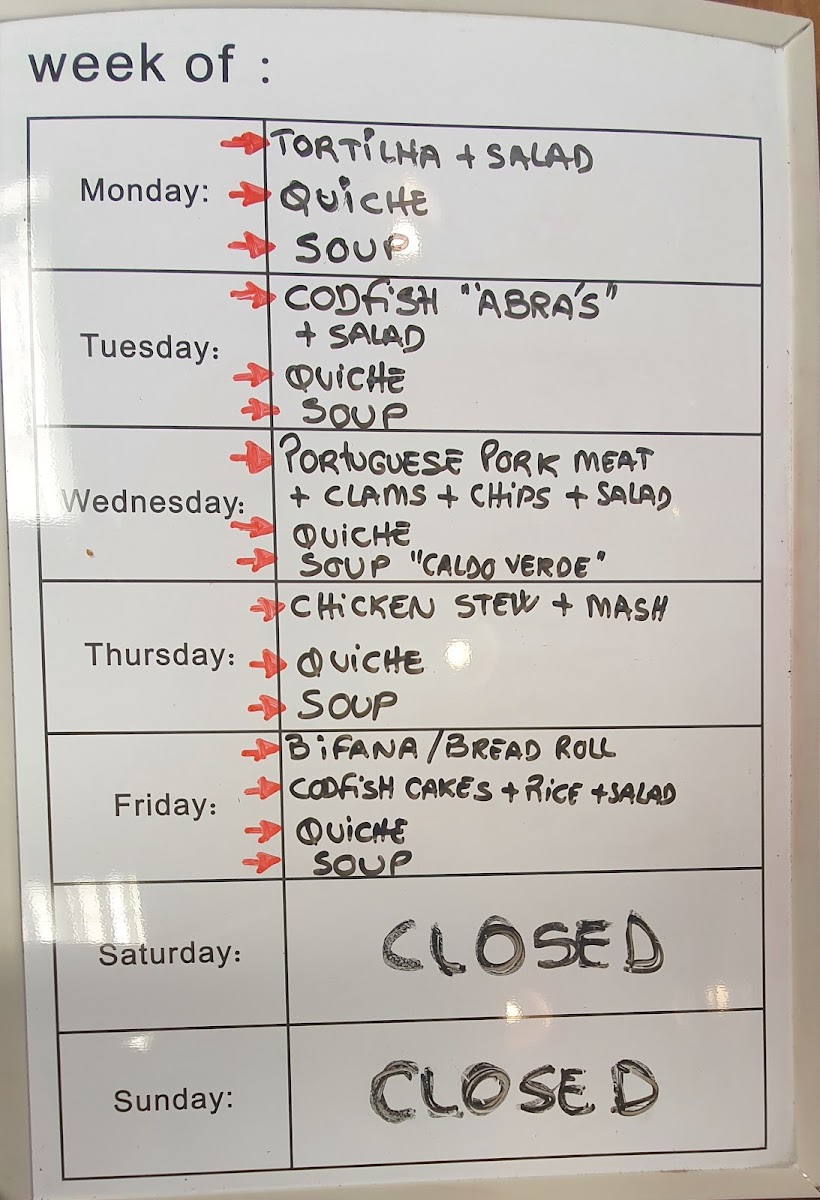 week of :
Monday:
TORTiLHA + SALAD
QUiCHE
SOUP
Tuesday:
CODFiSH "ABRA'S"
+ SALAD
QUiCHE
SOUP
Wednesday:
PORTUGUESE PORK MEAT
+ CLAMS + CHiPS + SALAD
QUiCHE
SOUP "CALDO VERDE"
Thursday:
CHiCKEN STEW + MASH
QUiCHE
SOUP
Friday:
BiFANA / BREAD ROLL
CODFiSH CAKES + RiCE + SALAD
QUiCHE
SOUP
Saturday:
CLOSED
Sunday:
CLOSED